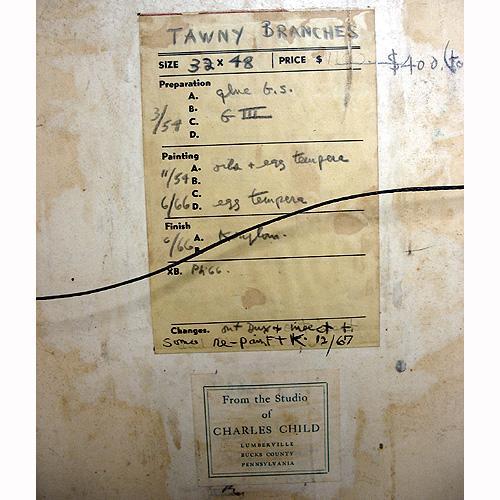 TAWNY BRANCHES
SIZE 32 x 48 PRICE $ $400.
Preparation
A. glue G.S.
B. G III
3/54 C.
D.
Painting
A. oils + egg tempera
11/54 B.
C.
6/66 D. egg tempera
Finish
6/66 A. Krylon.
B.
XB. Ph 66.
Changes. out
Some re-paint + K. 12/67
From the Studio
of
CHARLES CHILD
LUMBERVILLE
BUCKS COUNTY
PENNSYLVANIA